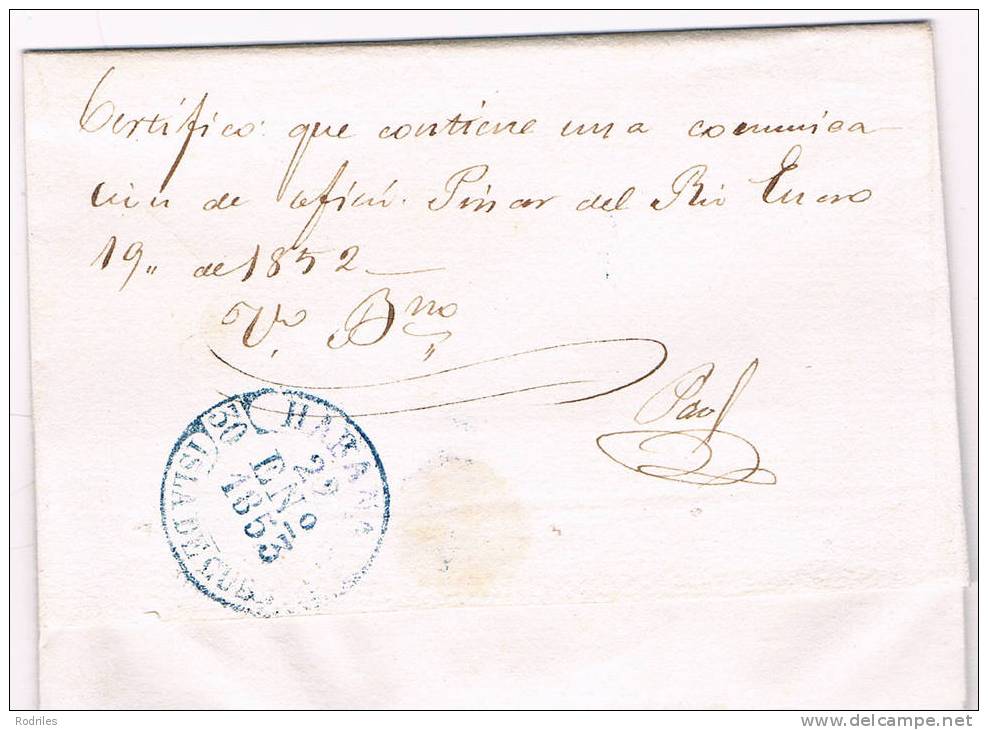 Certifico que contiene una comunica
cion de oficio. Pinar del Rio Enero
19,, de 1852
Vo. Bno
HABANA
22
ENO
1853
30
ISLA DE CUBA
Rodriles
www.delcampe.net